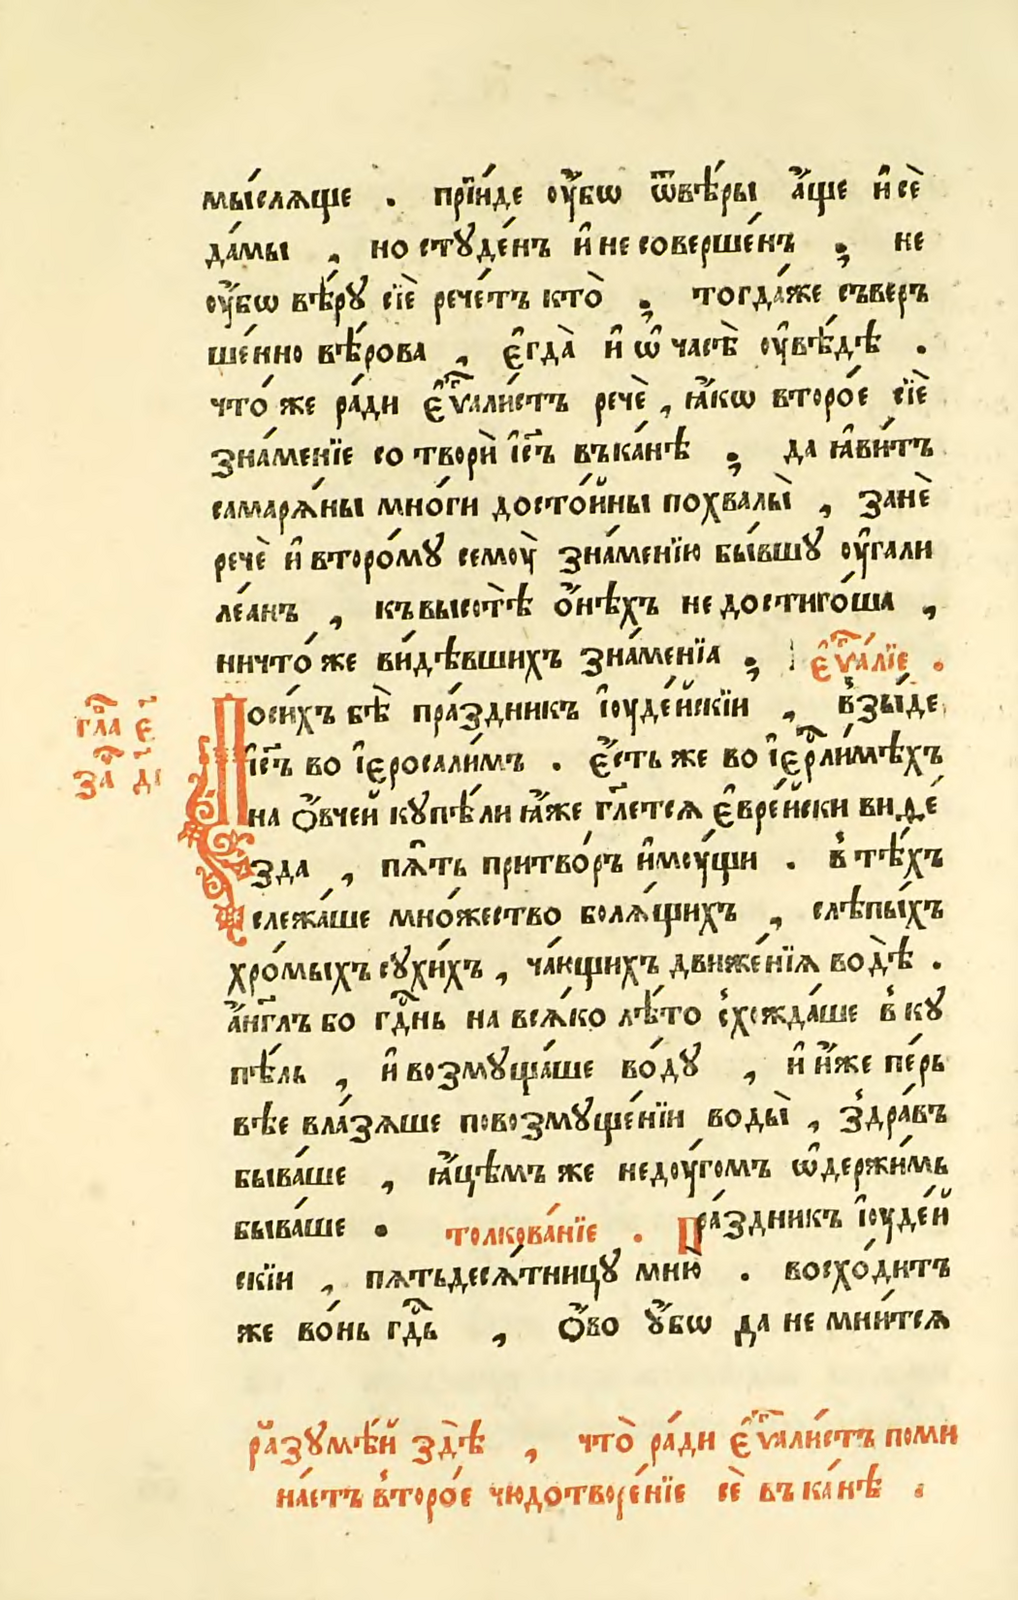 мы́слѧще . прїи́де ᲂу҆́бѡ ѿвѣ́ры а҆́ще и҆ сѐ
да́мы , но студе́нъ и҆ не соверше́нъ ; не
ᲂу҆́бѡ вѣ́рꙋ сїѐ рече́тъ кто̀ ; тогда́же съвер
ше́нно вѣ́рова , є҆гда̀ и҆ ѡ҆ часѣ̀ ᲂу҆вѣ́дѣ .
что́ же ра́ди є҆ѵⷢ҇али́стъ речѐ , ꙗ҆́кѡ второ́е сїѐ
зна́менїе со творѝ і҆и҃съ въ ка́нѣ ; да ꙗ҆ви́тъ
самарѧ́ны мно́ги досто́йны похвалы̀ , занѐ
речѐ и҆ второ́мꙋ семꙋ̀ зна́менїю бы́вшꙋ ᲂу҆ гали
ле́анъ , къ высотѣ̀ ѻ҆́нѣхъ не достиго́ша ,
ничто́ же ви́дѣвшихъ зна́менїѧ ; є҆ѵⷢ҇а́лїе .
Посѝхъ бѣ̀ пра́здникъ і҆ꙋде́йскїи , взы́де
і҆и҃съ во і҆єросали́мъ . є҆́сть же во і҆єрⷭ҇ли́мѣхъ
на ѻ҆́вчей кꙋпѣ́ли ꙗ҆́же гл҃етсѧ є҆вре́йски виде́
зда , пѧ́ть притво́ръ и҆мᲂу́щи . в тѣ́хъ
слежа́ше мно́жество болѧ́щихъ , слѣпы́хъ
хро́мыхъ сꙋхи́хъ , ча́ющихъ движе́нїѧ водѣ̀ .
а҆́нг҃лъ бо гдⷭ҇нь на всѧ́ко лѣ́то схожда́ше в кꙋ
пѣ́ль , и҆ возмꙋща́ше во́дꙋ , и҆ и҆́же пе́рь
вѣе вла́зѧше повозмꙋще́нїи воды̀ , здра́въ
быва́ше , ꙗ҆́цѣмъ же недᲂу́гомъ ѡ҆держи́мь
быва́ше . толкова́нїе . Пра́здникъ і҆ᲂуде́й
скїи , пѧтьдесѧ́тницꙋ мню̀ . восхо́дитъ
же во́нь гдⷭ҇ь , ѻ҆́во ꙋ҆́бѡ да не мни́тсѧ
гла҃ є҃
за҃ д҃і
разꙋмѣ́й здѣ̀ , что̀ ра́ди є҆ѵⷢ҇али́стъ поми
на́етъ второ́е чюдотворе́нїе сѐ въ ка́нѣ .